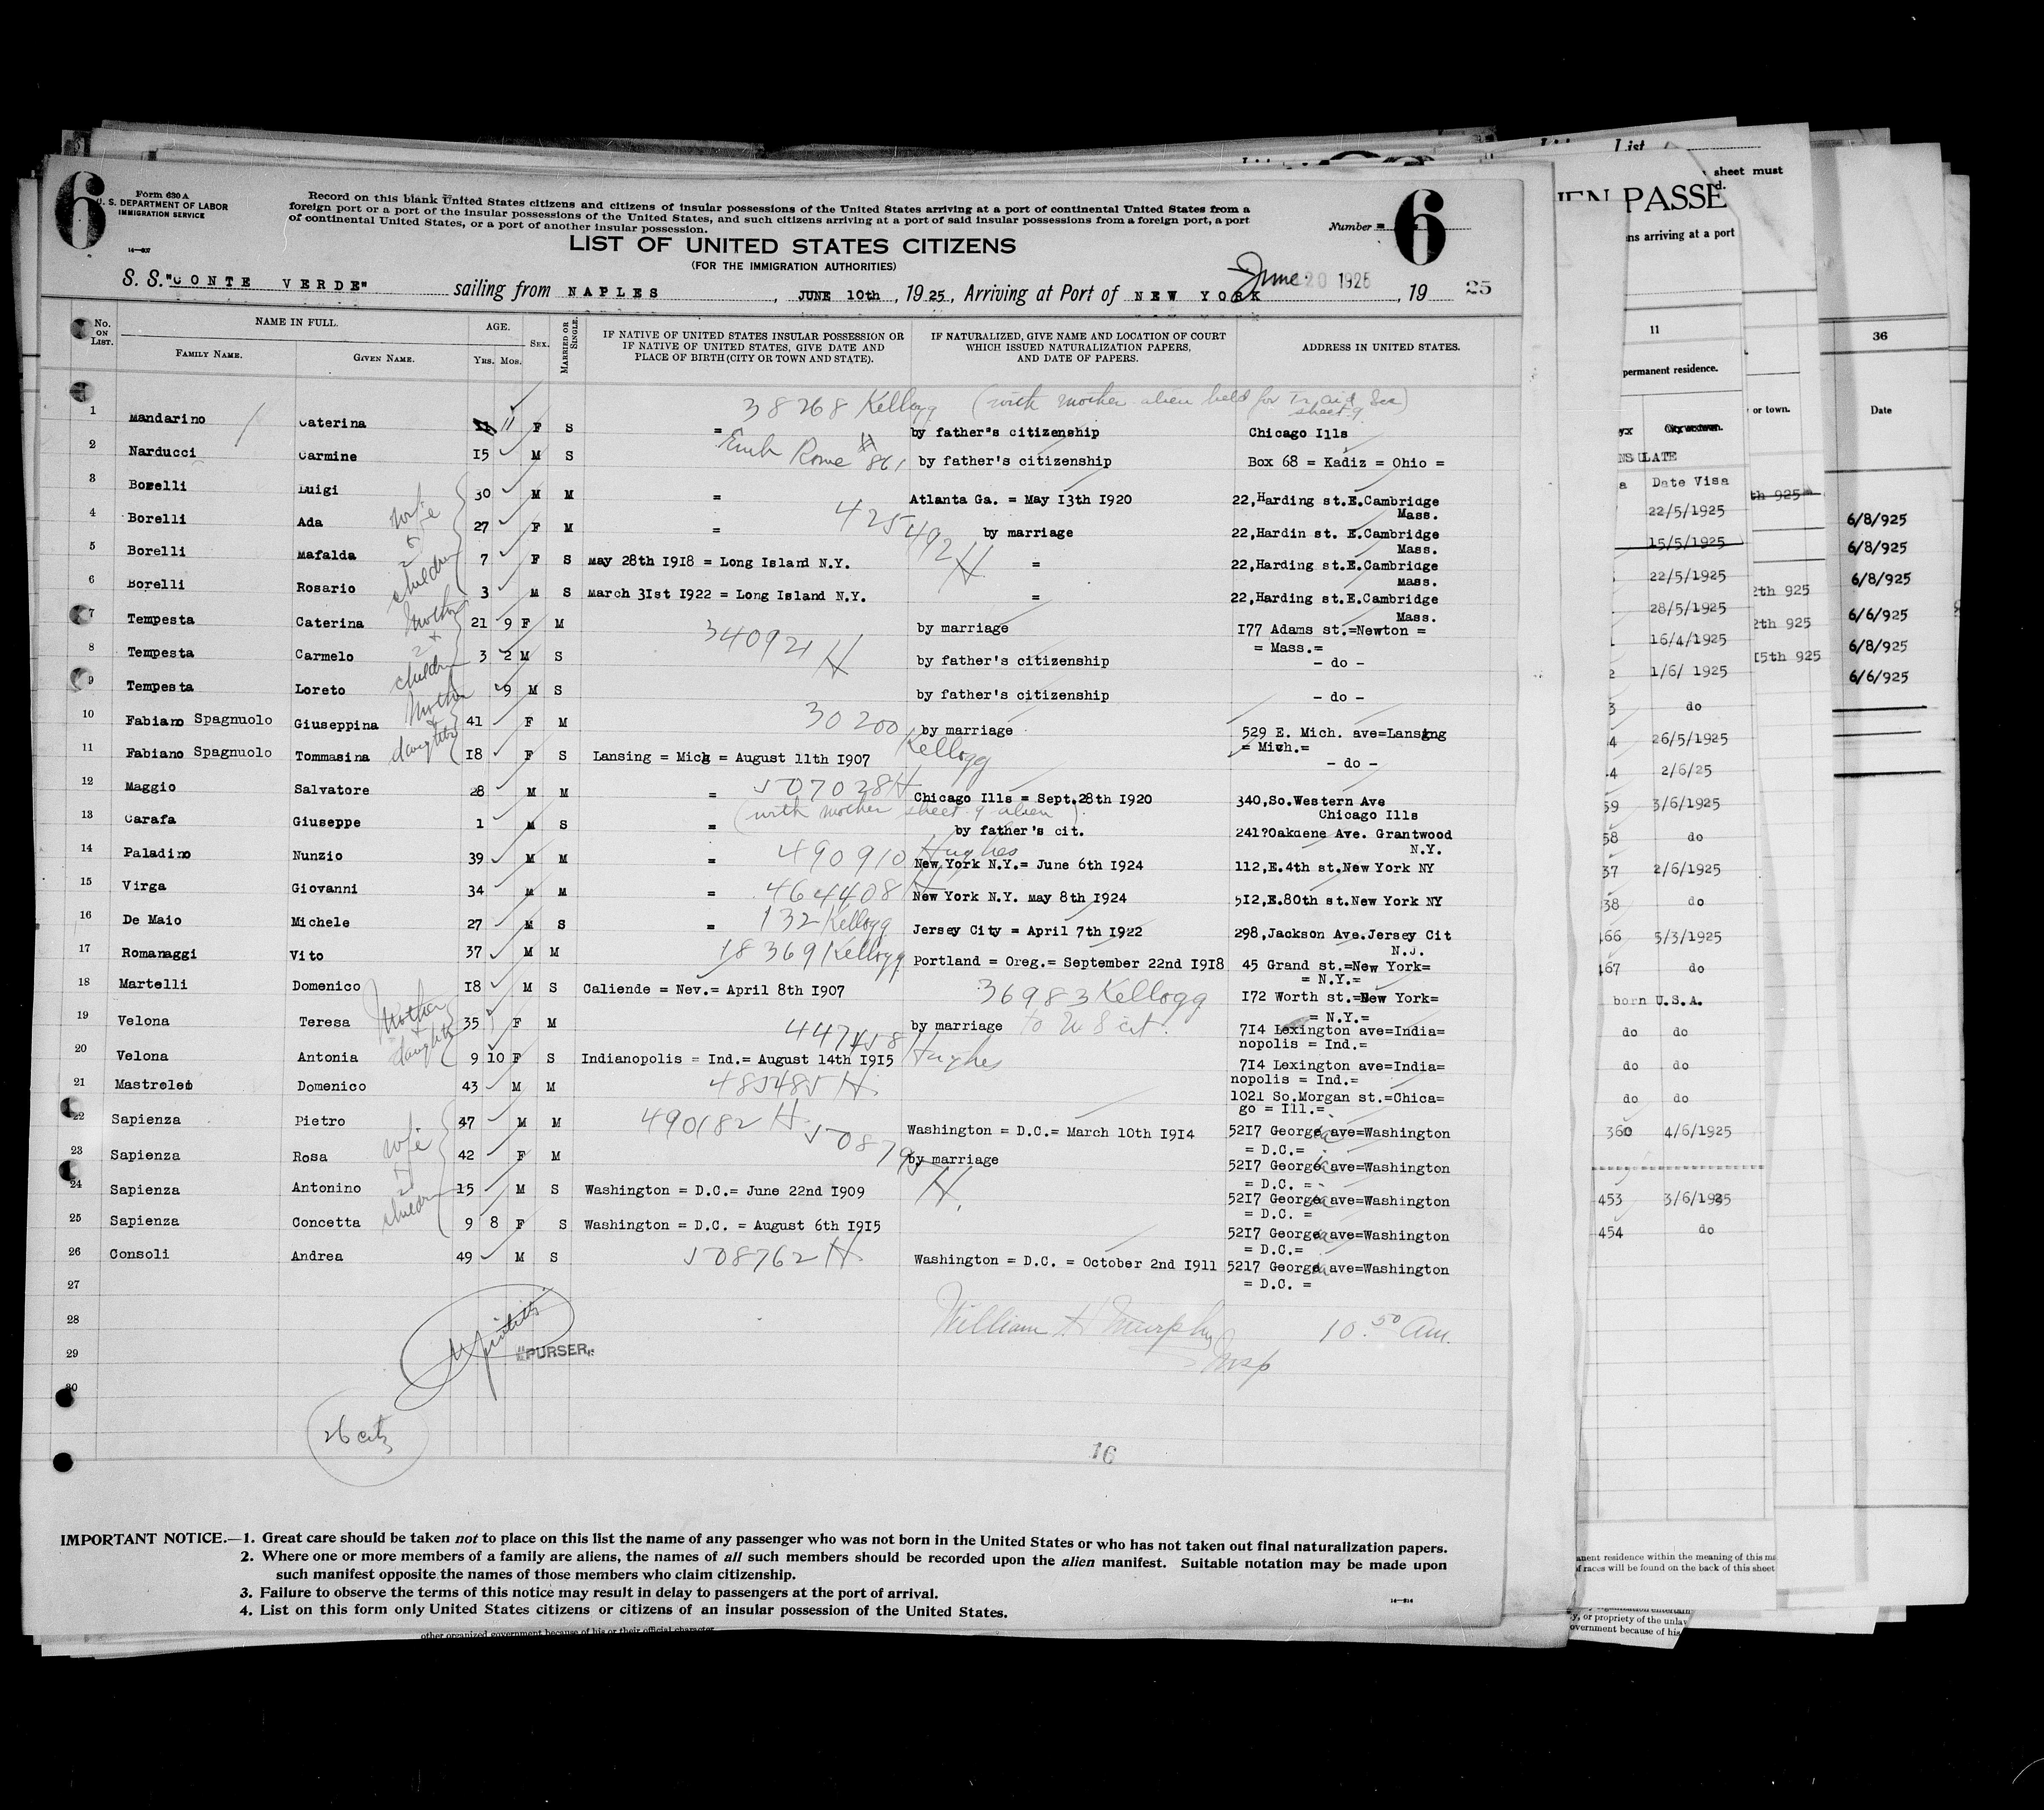 6
Form 630 A
U. S. DEPARTMENT OF LABOR
IMMIGRATION SERVICE
Record on this blank United States citizens and citizens of insular possessions of the United States arriving at a port of continental United States from a
foreign port or a port of the insular possessions of the United States, and such citizens arriving at a port of said insular possessions from a foreign port, a port
of continental United States, or a port of another insular possession.
Number = 6
LIST OF UNITED STATES CITIZENS
(FOR THE IMMIGRATION AUTHORITIES)
S. S. "CONTE VERDE" sailing from NAPLES, JUNE 10th, 1925, Arriving at Port of NEW YORK June 20 1925, 19 25
No. ON LIST. NAME IN FULL. FAMILY NAME. GIVEN NAME. AGE. Yrs. Mos. SEX. MARRIED OR SINGLE. IF NATIVE OF UNITED STATES INSULAR POSSESSION OR IF NATIVE OF UNITED STATES, GIVE DATE AND PLACE OF BIRTH (CITY OR TOWN AND STATE). IF NATURALIZED, GIVE NAME AND LOCATION OF COURT WHICH ISSUED NATURALIZATION PAPERS, AND DATE OF PAPERS. ADDRESS IN UNITED STATES.
38268 Kellogg (with mother alien held for sheet 9)
1 Mandarino Caterina 11 F S = by father's citizenship Chicago Ills
Emb Rome # 861
2 Narducci Carmine 15 M S by father's citizenship Box 68 = Kadiz = Ohio =
3 Borelli Luigi 30 M M = Atlanta Ga. = May 13th 1920 22,Harding st.E.Cambridge Mass.
wife & 2 children
425492 H
4 Borelli Ada 27 F M = by marriage 22,Hardin st. E.Cambridge Mass.
5 Borelli Mafalda 7 F S May 28th 1918 = Long Island N.Y. = 22,Harding st.E.Cambridge Mass.
6 Borelli Rosario 3 M S March 31st 1922 = Long Island N.Y. = 22,Harding st.E.Cambridge Mass.
mother + 2 children
340921 H
7 Tempesta Caterina 21 9 F M by marriage 177 Adams st.=Newton = = Mass.=
8 Tempesta Carmelo 3 2 M S by father's citizenship - do -
9 Tempesta Loreto 9 M S by father's citizenship - do -
mother + daughter
30200 Kellogg
10 Fabiano Spagnuolo Giuseppina 41 F M by marriage 529 E. Mich. ave=Lansing = Mich.=
11 Fabiano Spagnuolo Tommasina 18 F S Lansing = Mich = August 11th 1907 - do -
507028 H
12 Maggio Salvatore 28 M M = Chicago Ills = Sept.28th 1920 340,So.Western Ave Chicago Ills
(with mother sheet 9 alien)
13 Carafa Giuseppe 1 M S = by father's cit. 241?Oakdene Ave. Grantwood N.Y.
490910 Hughes
14 Paladino Nunzio 39 M M = New York N.Y.= June 6th 1924 112,E.4th st.New York NY
464408 H
15 Virga Giovanni 34 M M = New York N.Y. may 8th 1924 512,E.80th st.New York NY
132 Kellogg
16 De Maio Michele 27 M S = Jersey City = April 7th 1922 298,Jackson Ave.Jersey Cit N.J.
18369 Kellogg
17 Romanaggi Vito 37 M M Portland = Oreg.= September 22nd 1918 45 Grand st.=New York= = N.Y.=
18 Martelli Domenico 18 M S Caliende = Nev.= April 8th 1907 36983 Kellogg 172 Worth st.=New York= = N.Y.=
mother + daughter
19 Velona Teresa 35 F M by marriage to U S cit. 714 Lexington ave=India= nopolis = Ind.=
447458 Hughes
20 Velona Antonia 9 10 F S Indianopolis = Ind.= August 14th 1915 714 Lexington ave=India= nopolis = Ind.=
21 Mastroleo Domenico 43 M M 485485 H 1021 So.Morgan st.=Chica= go = Ill.=
wife + 2 children
22 Sapienza Pietro 47 M M 490182 H Washington = D.C.= March 10th 1914 5217 Georgia ave=Washington = D.C.=
23 Sapienza Rosa 42 F M 50879 H. by marriage 5217 Georgia ave=Washington = D.C. =
24 Sapienza Antonino 15 M S Washington = D.C.= June 22nd 1909 5217 Georgia ave=Washington = D.C. =
25 Sapienza Concetta 9 8 F S Washington = D.C. = August 6th 1915 5217 Georgia ave=Washington = D.C.=
26 Consoli Andrea 49 M S 508762 H Washington = D.C. = October 2nd 1911 5217 Georgia ave=Washington = D.C. =
27
28
29
30
William H Murphy Insp 10.50 Am.
PURSER
26 citz
16
IMPORTANT NOTICE.—1. Great care should be taken not to place on this list the name of any passenger who was not born in the United States or who has not taken out final naturalization papers.
2. Where one or more members of a family are aliens, the names of all such members should be recorded upon the alien manifest. Suitable notation may be made upon
such manifest opposite the names of those members who claim citizenship.
3. Failure to observe the terms of this notice may result in delay to passengers at the port of arrival.
4. List on this form only United States citizens or citizens of an insular possession of the United States.
14—214
other organized government because of his or their official character
List
sheet must
PASSE
ns arriving at a port
11
permanent residence.
or town.
36
Date
Date Visa
22/5/1925
15/5/1925
22/5/1925
28/5/1925
16/4/1925
1/6/ 1925
do
26/5/1925
2/6/25
3/6/1925
do
2/6/1925
do
5/3/1925
do
born U.S.A.
do do
do do
do do
360 4/6/1925
453 3/6/1925
454 do
th 925
2th 925
2th 925
15th 925
6/8/925
6/8/925
6/8/925
6/6/925
6/8/925
6/6/925
anent residence within the meaning of this ma
f races will be found on the back of this sheet
y, or propriety of the unlaw
overnment because of his